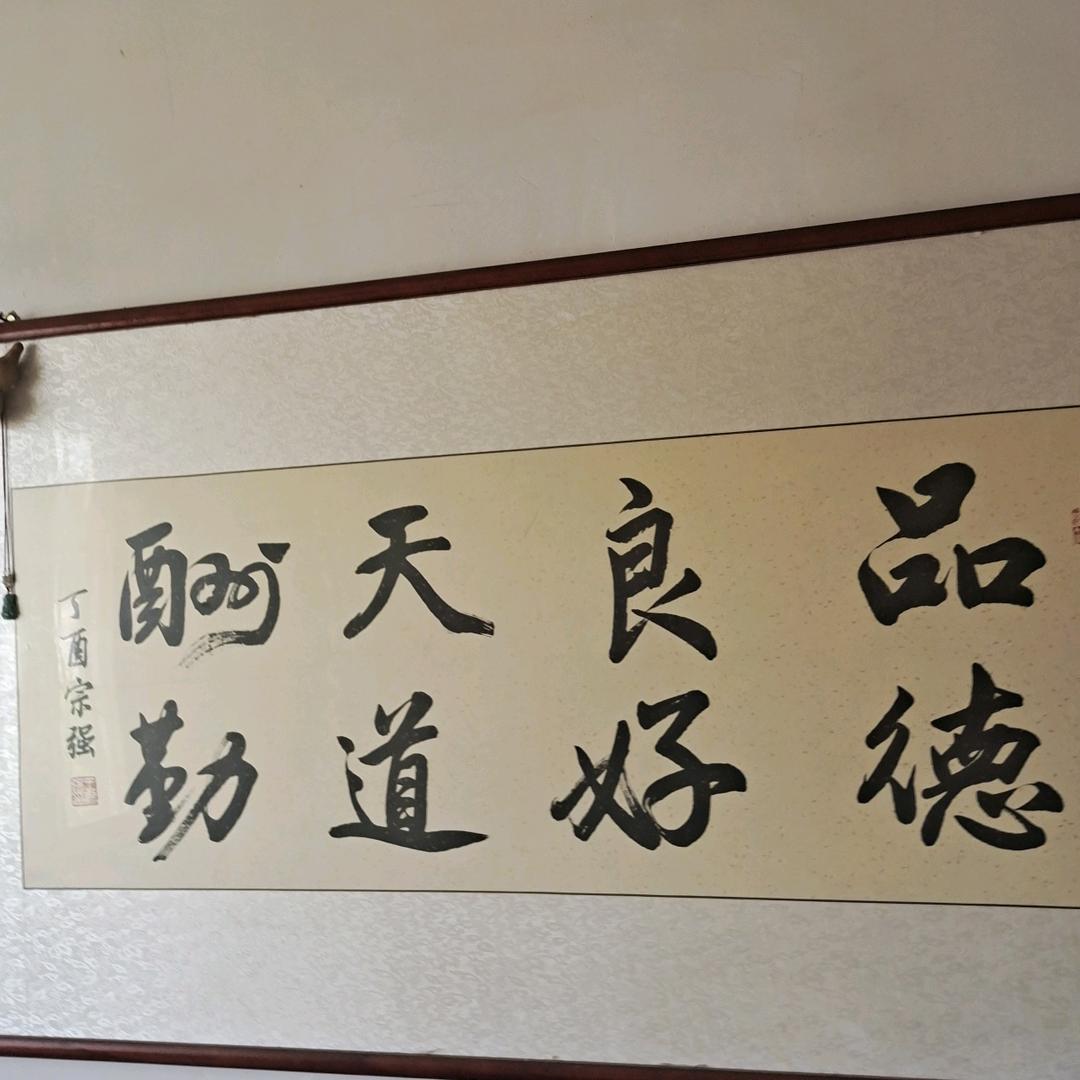 品德
良好
天道
酬勤
丁酉宗强